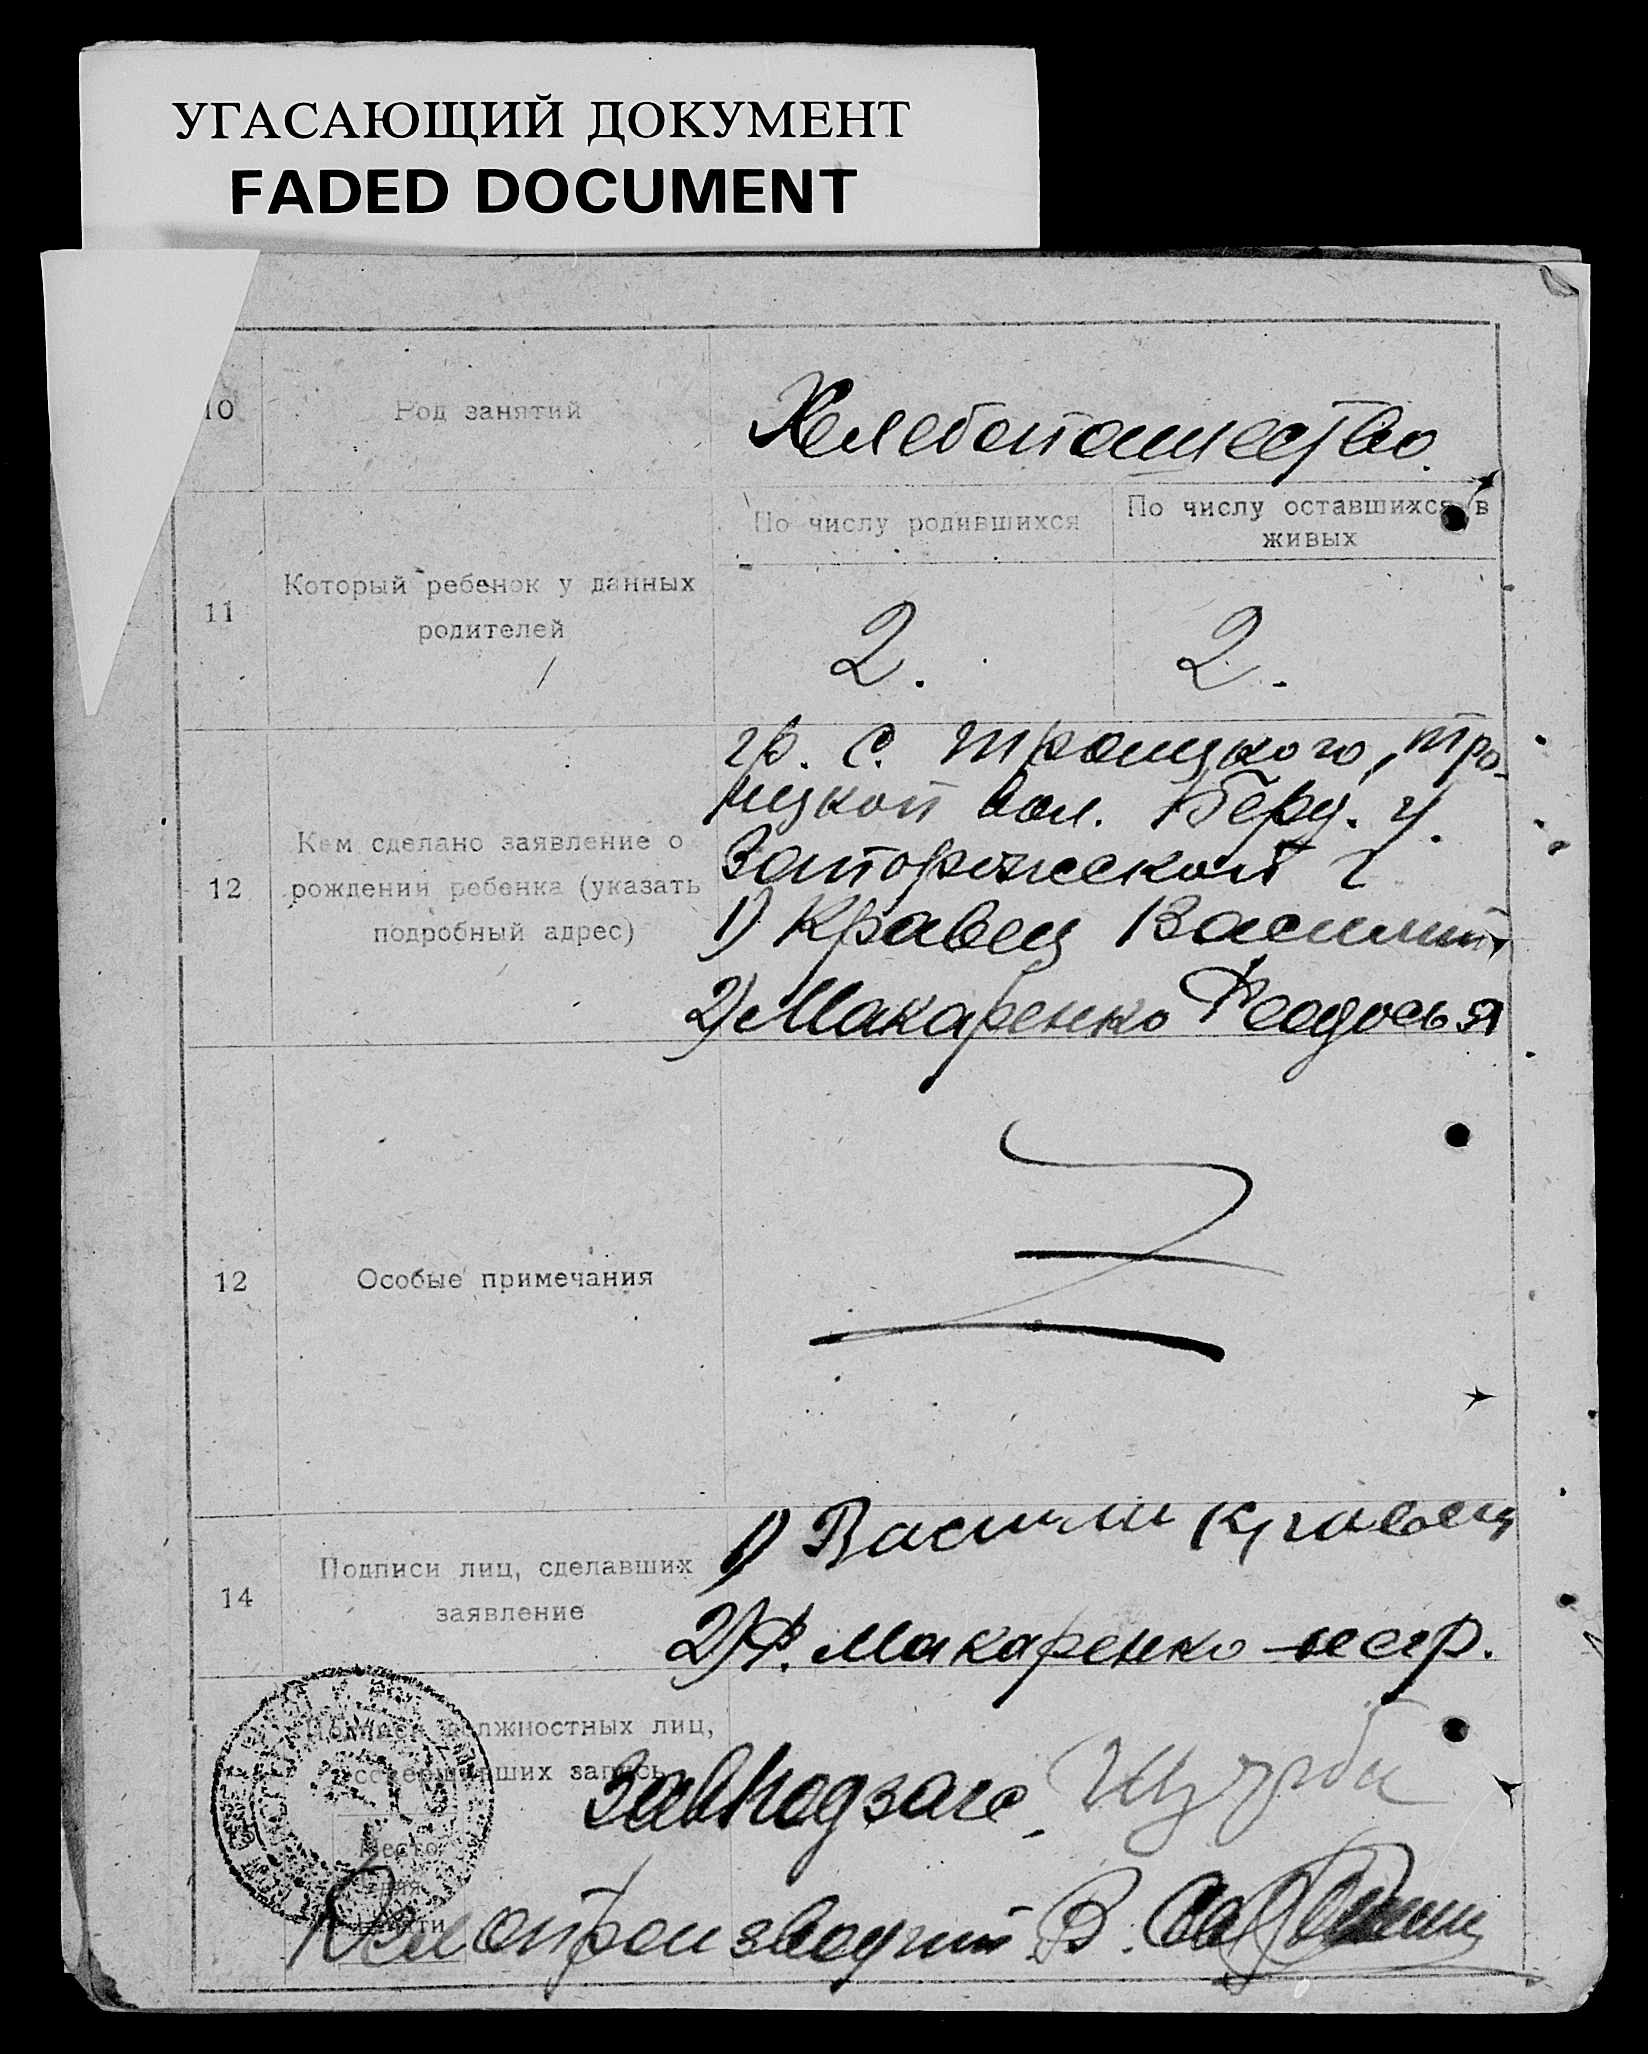 УГАСАЮЩИЙ ДОКУМЕНТ
FADED DOCUMENT
10
Род занятий
Хлебопашество.
11
Который ребенок у данных
родителей
По числу родившихся
По числу оставшихся в
живых
2.
2.
12
Кем сделано заявление о
рождении ребенка (указать
подробный адрес)
гр. с. Троицкого, Тро-
ицкой вол. Берд. у.
Запорожской г
1) Кравец Василий,
2) Макаренко Феодосья
12
Особые примечания
14
Подписи лиц, сделавших
заявление
1) Васили Кравец
2) Ф. Макаренко негр.
Подписи должностных лиц,
совершивших запись
Завподзагс.
Место
для
печати
Делопроизводит В.